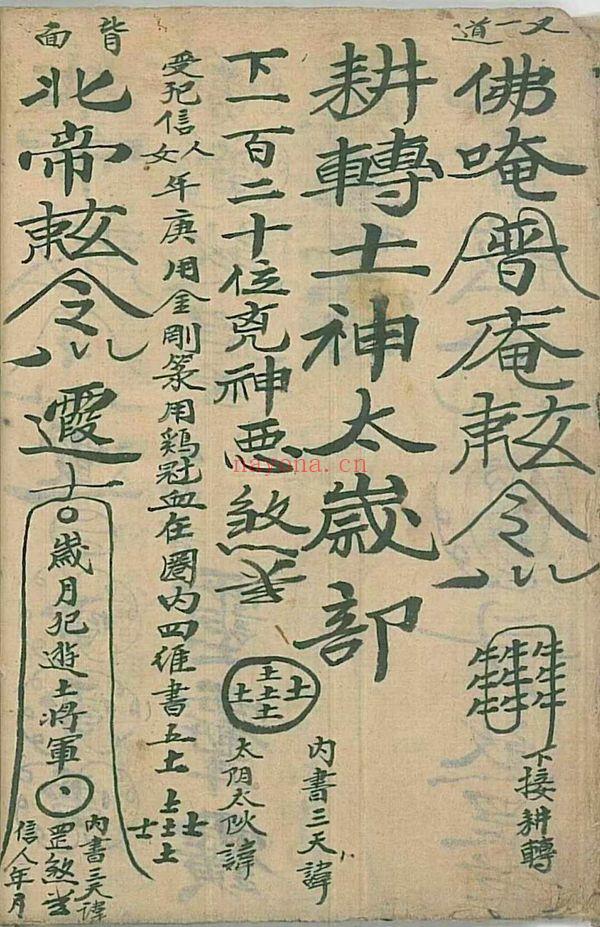 又一道
佛唵普庵𢆯令
下接耕轉
耕轉土神太歲部
內書三天諱
下一百二十位兇神惡煞
土土土土土
太阴太阳諱
受犯信人
女
年庚用金剛筆用鷄冠血在圈内四維書五土
土土土土土
背面
北帝𢆯令
歲月犯遊土將軍
内書三天諱
罡煞
信人年月
nayona.cn